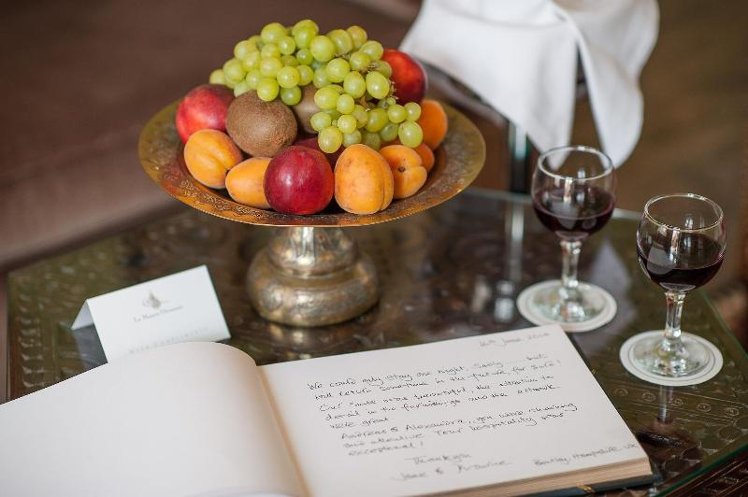 La Maison Ottomane
16th June, 2014
We could only stay one night, Sadly - but
will return sometime in the future, for sure!
Our suite was beautiful, the attention to
detail in the furnishings and the artwork
were great
Andreas & Alexandra, you were charming
and attentive. Your hospitality was
exceptional!
Thankyou
Jane &
Bentley, Hampshire, UK